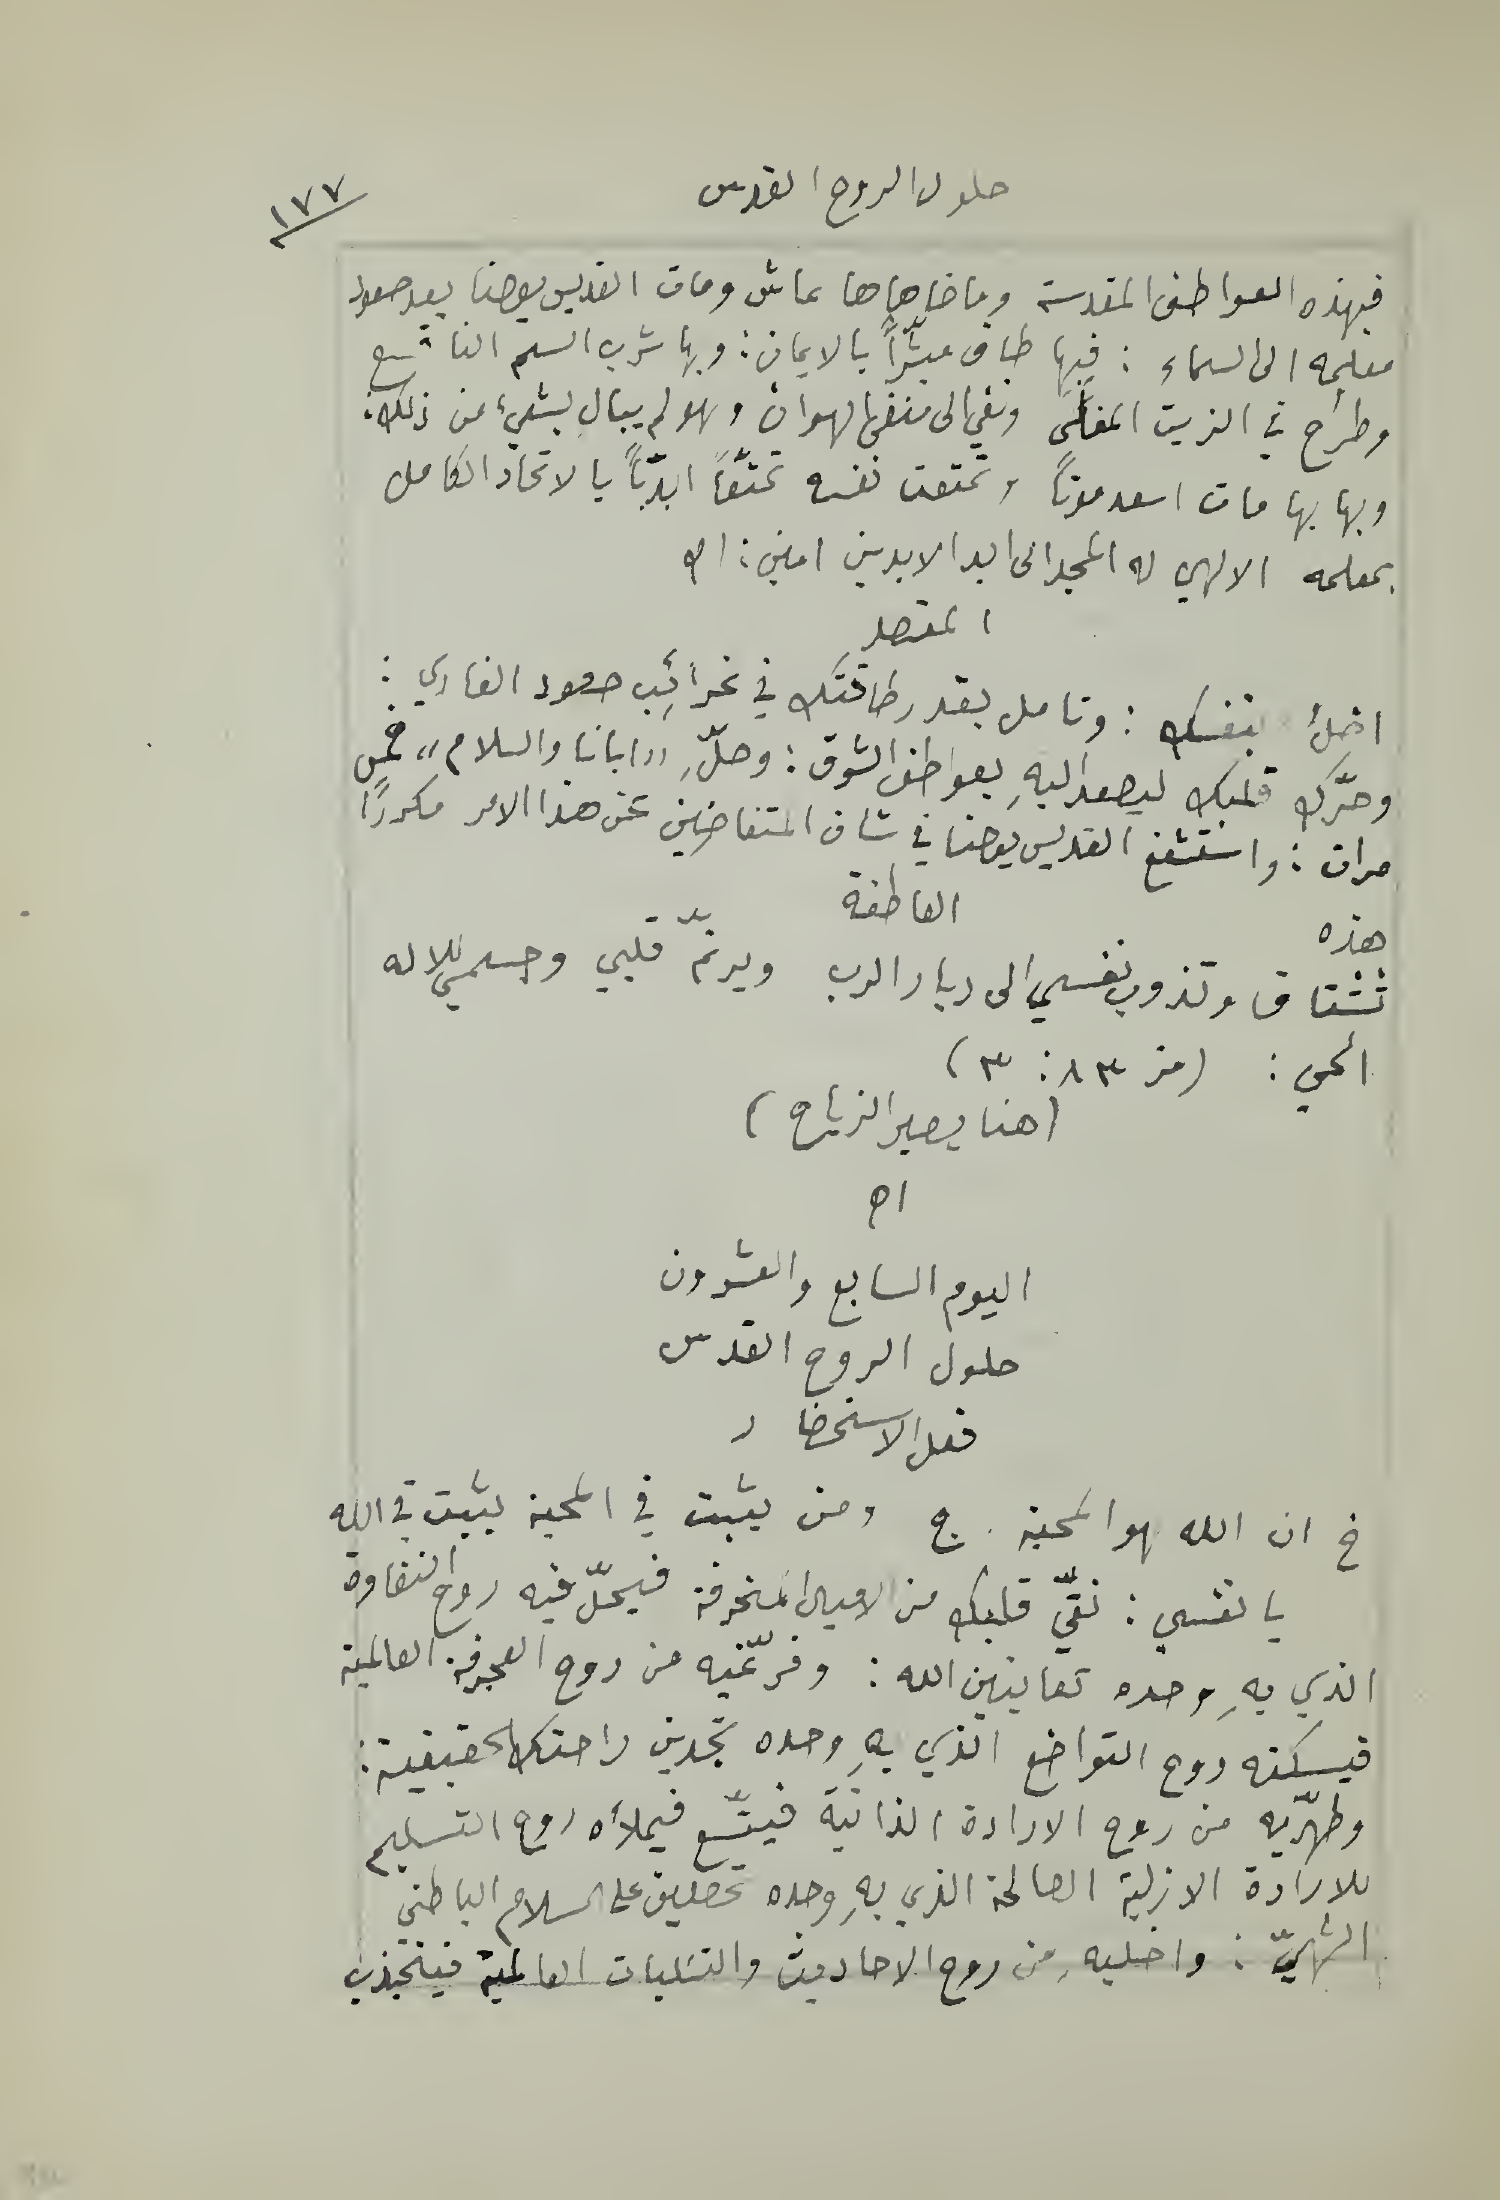 حلول الروح القدس
١٧٧
فبهذه العواطف المقدسة وما ضاهاها عاش ومات القديس يوحنا بعد صعود
معلمه الى السماء : فبها طاف مبشّراً بالايمان : وبها شرب السم الناقع
وطُرح في الزيت المغلَى ونفي الى منفى الهوان وهو لم يبالِ بشيء من ذلك :
وبها بها مات اسعد موتاً وتمتعت نفسه تمتّعاً ابديّاً بالاتحاد الكامل
بمعلمه الالهي له المجد الى ابد الابدين امين : اه
المقصد
اخلُ بنفسك : وتامل بقدر طاقتك في غرائب صعود الفادي :
وحرّك قلبك ليصعد اليهِ بعواطف الشوق : وصلِّ "ابانا والسلام" خمس
مرات : واستشفع القديس يوحنا في شان المتغاضين عن هذا الامر مكررًا
هذه
العاطفة
تشتاق وتذوب نفسي الى ديار الرب ويرنّم قلبي وجسمي للاله
الحي : (مز ٨٣ : ٣)
(هنا يصير الزياح)
اه
اليوم السابع والعشرون
حلول الروح القدس
فعل الاستحضار
خ ان الله هو المحبة . ج ومن يثبت في المحبة يثبت في الله
يا نفسي : نقّي قلبك من الاميال المنحرفة فيحلّ فيه روح النقاوة
الذي بهِ وحده تعاينين الله : وفرّغيه من روح العجرفة العالمية
فيسكنه روح التواضع الذي بهِ وحده تجدين راحتك الحقيقية :
وطهّريه من روح الارادة الذاتية فيتّسع فيملأه روح التسليم
للارادة الازلية الصالحة الذي بهِ وحده تحصلين على السلام الباطني
الشهيّ : واخليهِ من روح الاحاديث والتسليات العالمية فينجذب